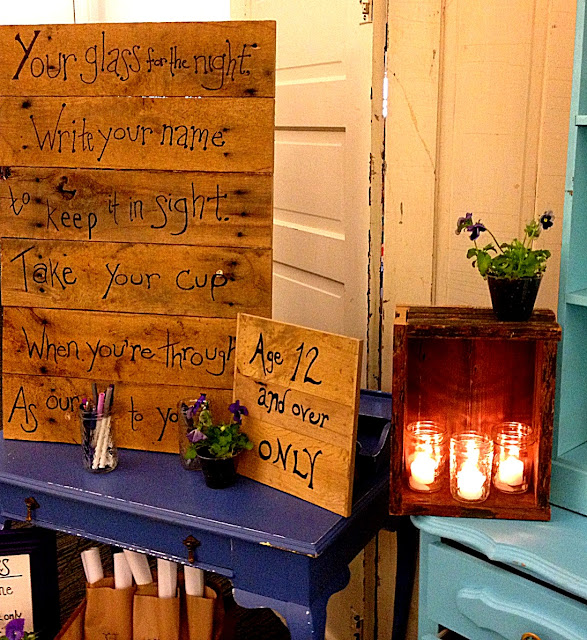 Your glass for the night.
Write your name
to keep it in sight.
Take your cup
When you're through
As our to yo
Age 12
and over
ONLY
only